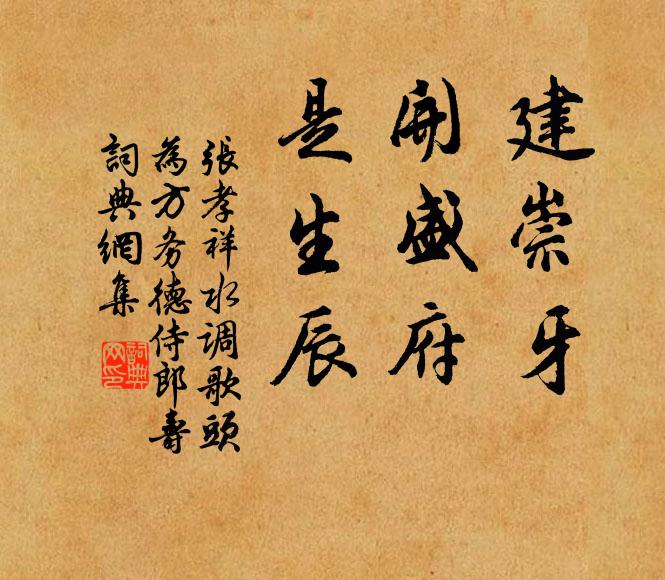 建崇牙
開盛府
是生辰
張孝祥水调歌頭
為方务德侍郎壽
詞典網集
詞典
网印